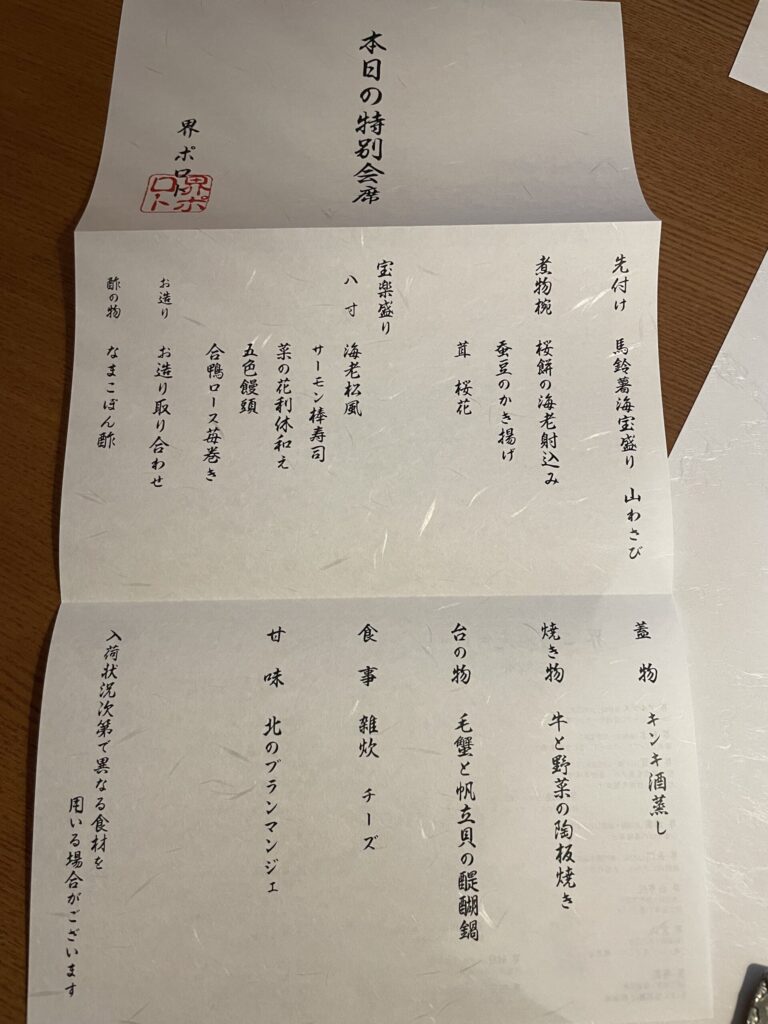 本日の特別会席
界 ポロト
界ポロト
先付け 馬鈴薯海宝盛り 山わさび
煮物椀 桜餅の海老射込み
蚕豆のかき揚げ
茸 桜花
宝楽盛り
八寸 海老松風
サーモン棒寿司
菜の花利休和え
五色饅頭
合鴨ロース苺巻き
お造り お造り取り合わせ
酢の物 なまこぽん酢
蓋物 キンキ酒蒸し
焼き物 牛と野菜の陶板焼き
台の物 毛蟹と帆立貝の醍醐鍋
食事 雑炊 チーズ
甘味 北のブランマンジェ
入荷状況次第で異なる食材を
用いる場合がございます